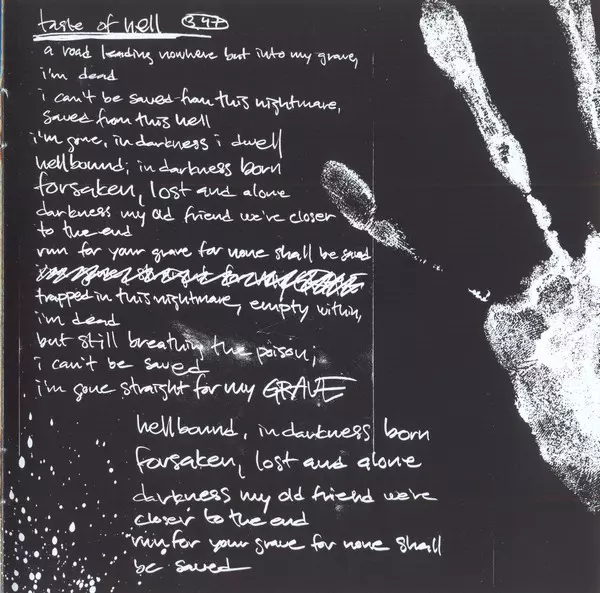 taste of hell 3,47
a road leading nowhere but into my grave,
i'm dead
i can't be saved from this nightmare,
saved from this hell
i'm gone, in darkness i dwell
hellbound; in darkness born
forsaken, lost and alone
darkness my old friend we're closer
to the end
run for your grave for none shall be saved
trapped in this nightmare, empty within,
i'm dead
but still breathing the poison;
i can't be saved
i'm gone straight for my GRAVE
hellbound, in darkness born
forsaken, lost and alone
darkness my old friend we're
closer to the end
run for your grave for none shall
be saved